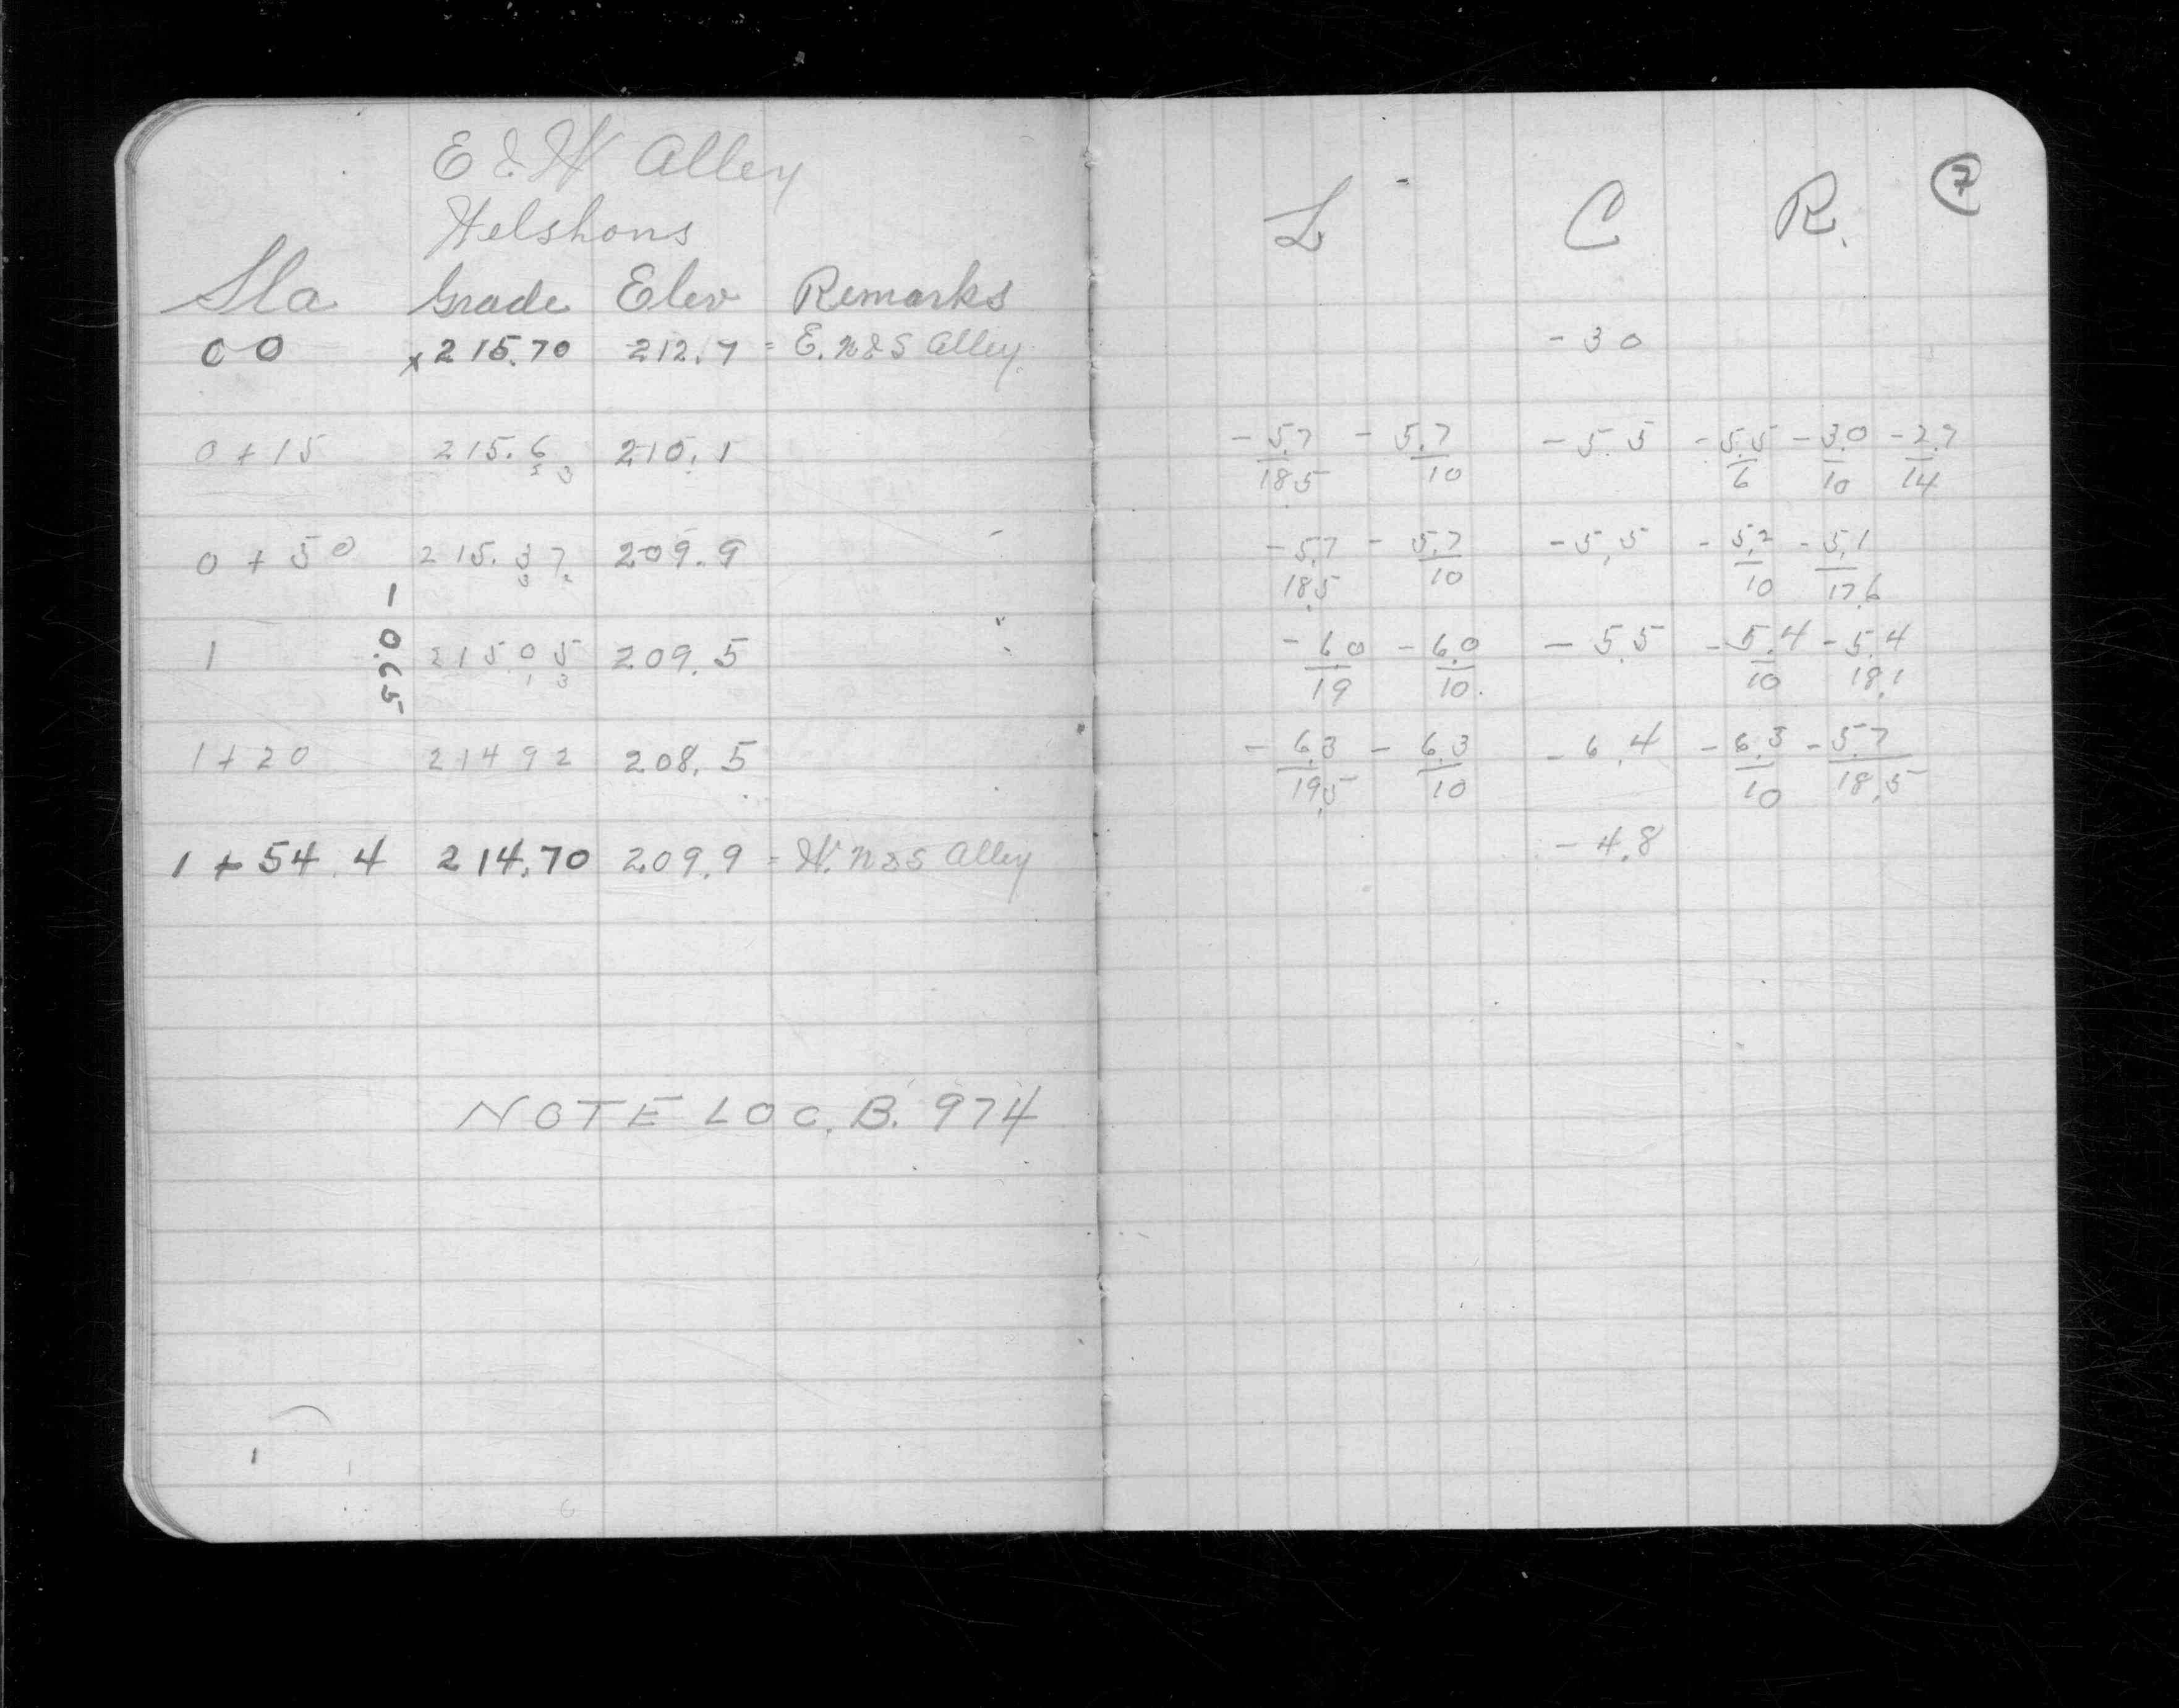 E & W Alley
Welshons
Sta Grade Elev Remarks
00 x 215.70 212.7 = E. N & S Alley.
0 + 15 215.6 210.1
0 + 50 215.37 209.9
1 215.05 209.5
- 0.65
1 + 20 214 92 208.5
1 + 54.4 214.70 209.9 = W. N & S Alley
NOTE LOC. B. 974
7
L C R.
- 3 0
- 5.7 - 5.7 - 5.5 - 5.5 - 3.0 - 2.7
18 5 10 6 10 14
- 5.7 - 5.7 - 5.5 - 5.2 - 5.1
18.5 10 10 17.6
- 6.0 - 6.0 - 5.5 - 5.4 - 5.4
19 10. 10 18.1
- 6.3 - 6.3 - 6.4 - 6.3 - 5.7
19.5 10 10 18.5
- 4.8